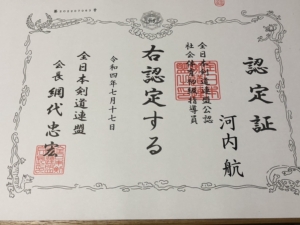 認定証
河内航
全日本剣道連盟公認
社会体育初級指導員
右認定する
令和四年七月十七日
全日本剣道連盟
会長 網代忠宏